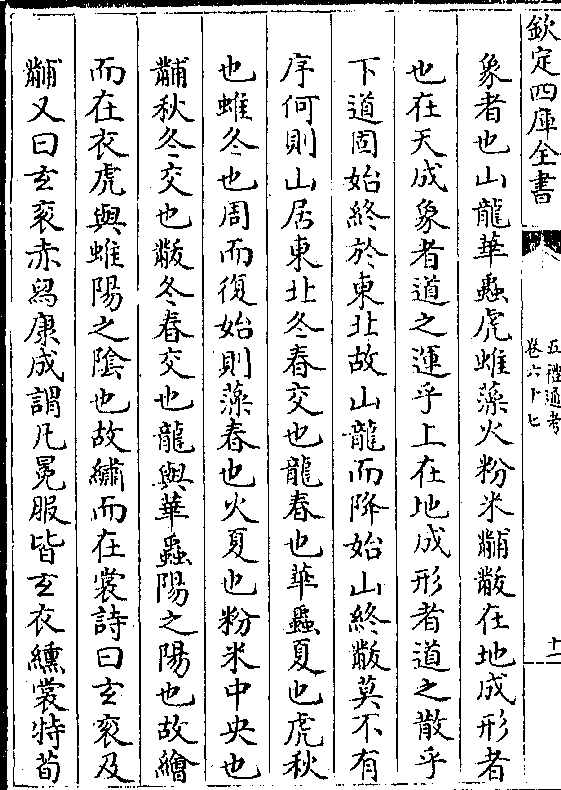 欽定四庫全書
五禮通考
卷六十七
十一
象者也山龍華蟲虎蜼藻火粉米黼黻在地成形者
也在天成象者道之運乎上在地成形者道之散乎
下道固始終於東北故山龍而降始山終黻莫不有
序何則山居東北冬春交也龍春也華蟲夏也虎秋
也蜼冬也周而復始則藻春也火夏也粉米中央也
黼秋冬交也黻冬春交也龍與華蟲陽之陽也故繪
而在衣虎與蜼陽之陰也故繡而在裳詩曰玄衮及
黼又曰玄衮赤舄康成謂凡冕服皆玄衣纁裳特荀